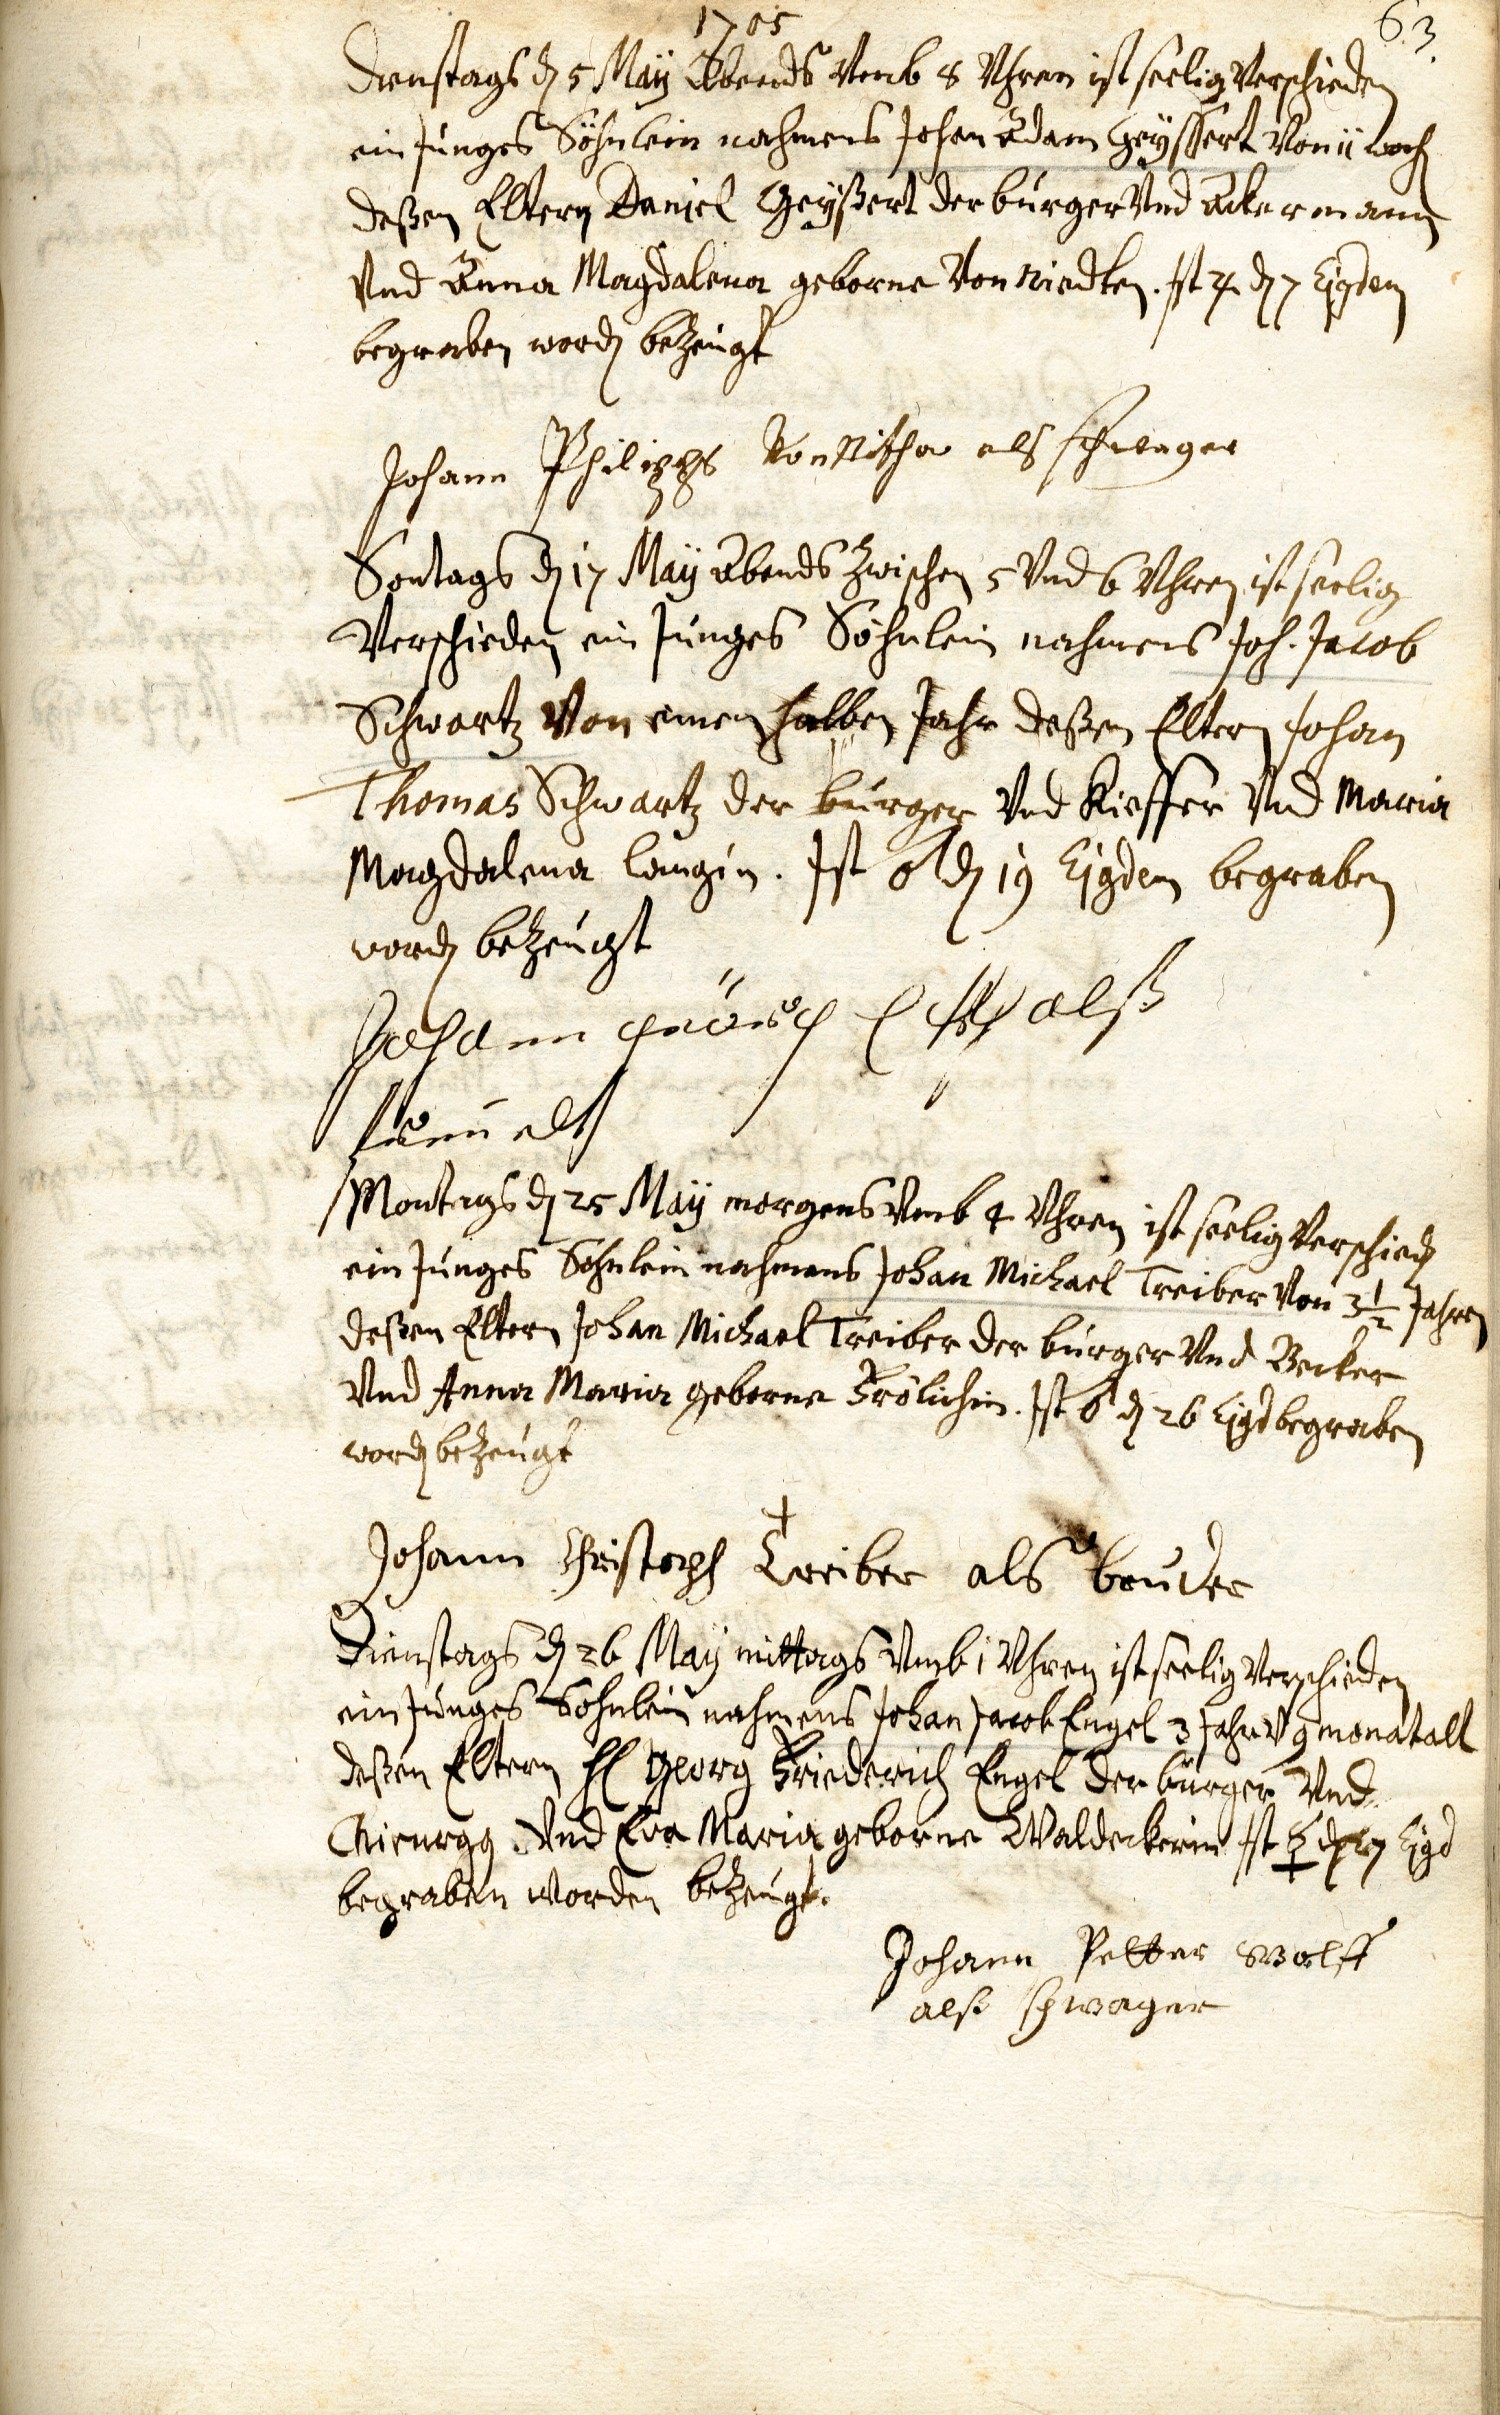 1705
63.
Dienstags d 5 Maÿ Abends Vmb 8 Vhren ist seelig Verschieden
ein Junges Söhnlein nahmens Johan Adam Geyssert Von 11 woch
deßen Eltern Daniel Geyßert der burger Vnd Ackermann
Vnd Anna Magdalena geborne Von Niedken. Ist ♃ d 7 Ejgdem
begraben word bezeugt
Johann Philipps Von als schwager
Sontags d 17 Maÿ Abends Zwischen 5 Vnd 6 Vhren ist seelig
Verschieden ein Junges Söhnlein nahmens Joh. Jacob
Schwartz Von einen halben Jahr deßen Eltern Johan
Thomas Schwartz der burger Vnd Kieffer Vnd Maria
Magdalena Langin. Ist ♂ d 19 Ejgdem begraben
word bezeugt
Johann alß
Montags d 25 Maÿ morgens Vmb 4 Vhren ist seelig Verschied
ein Junges Sohnlein nahmens Johan Michael Treiber Von 3½ Jahren
deßen Eltern Johan Michael Treiber der burger Vnd Becker
Vnd Anna Maria geborne Frölichin. Ist ♂ d 26 Ejgd begraben
word bezeugt
Johann Christoph Treiber als bruder
Dienstags d 26 Maÿ mittags Vmb 1 Vhren ist seelig Verschieden
ein Junges Sohnlein nahmens Johan Jacob Engel 3 Jahr V 9 monat alt
deßen Eltern H Georg Friederich Engel der burger Vnd
Chirurgg Vnd Eva Maria geborne Waldeckerin Ist ☿ d 27 Ejgd
begraben worden bezeugt.
Johann Petter Wolff
alß schwager